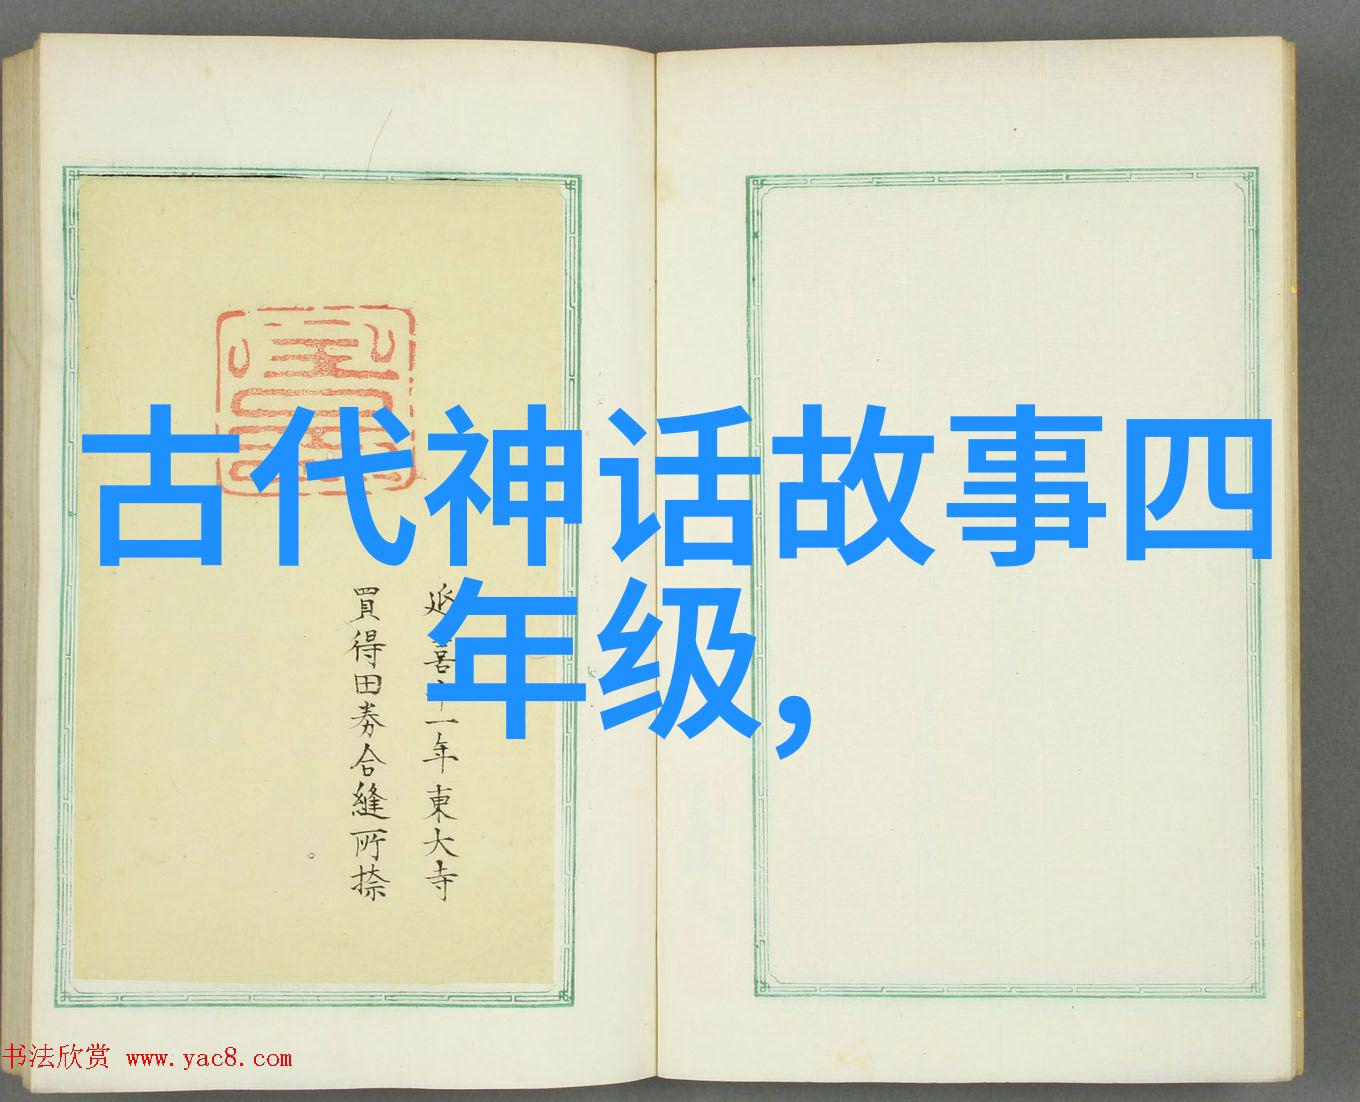 古代神话故事四
年级,
延喜十一年東大寺
買得田券合縫所捺
书法欣赏 www.yac8.com